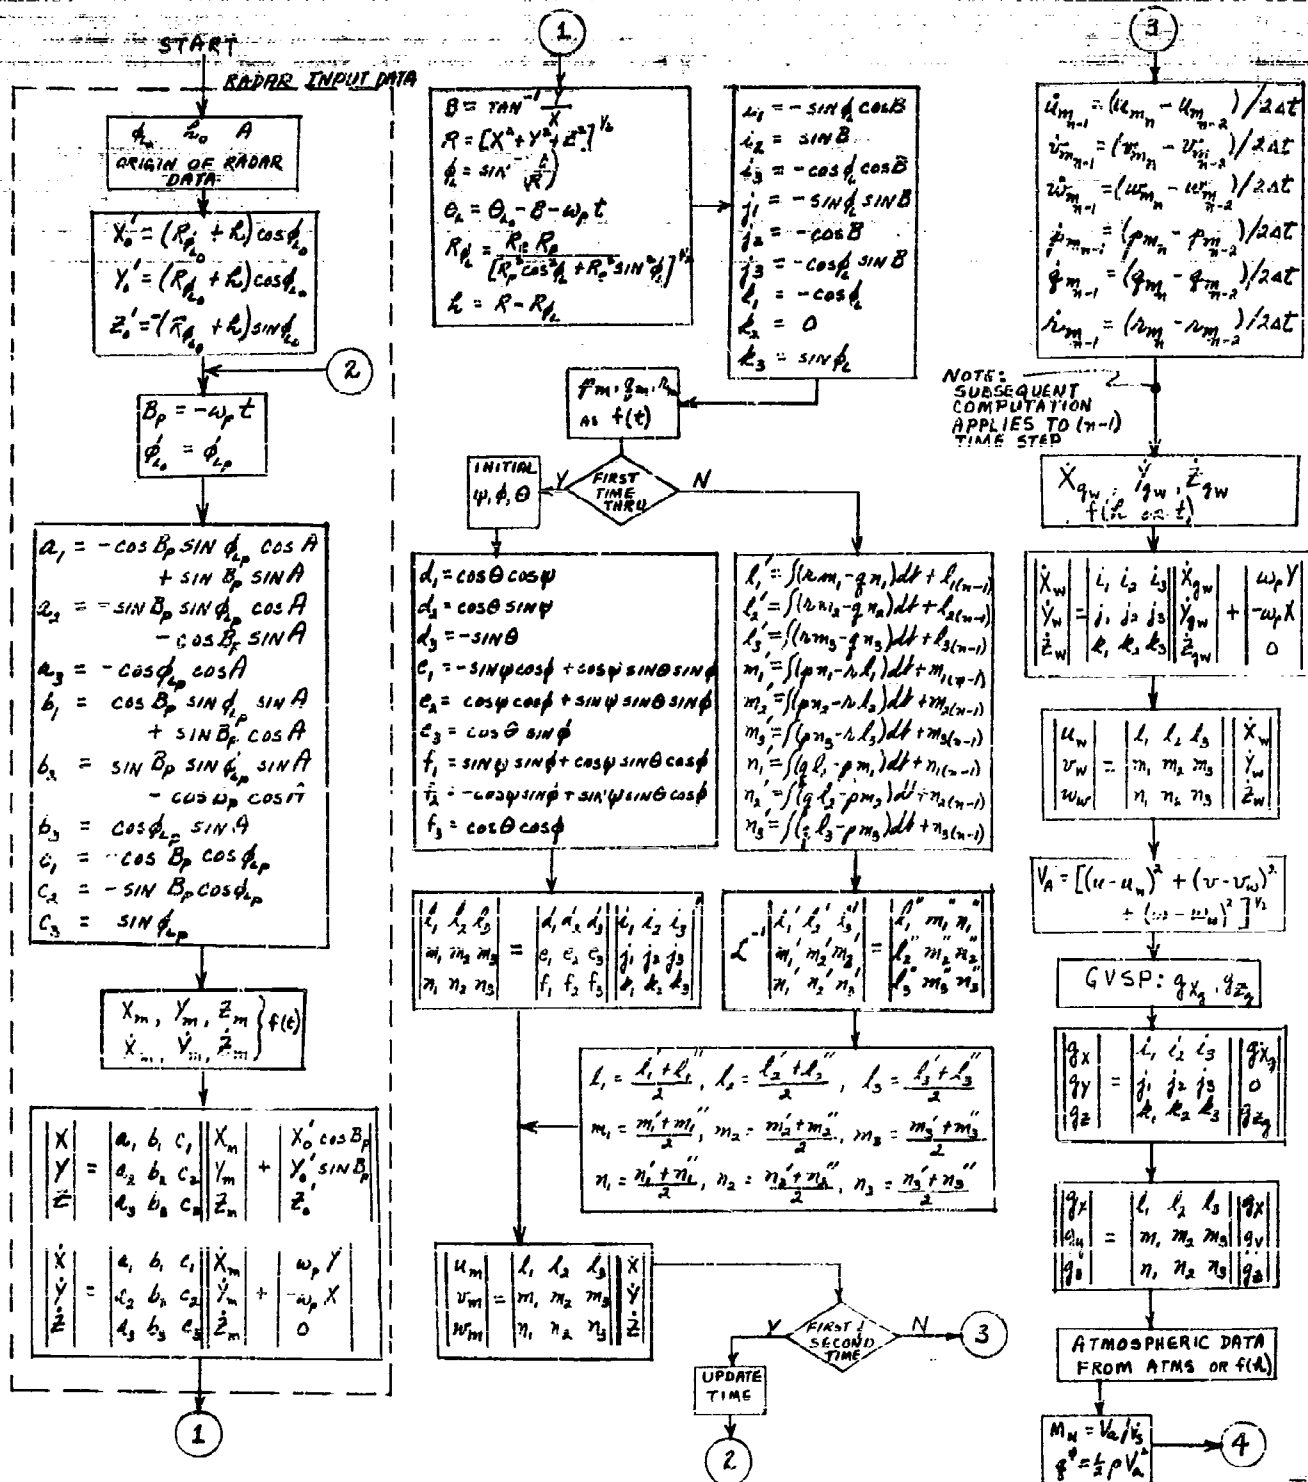 START
RADAR INPUT DATA
φ_L₀ h₀ A
ORIGIN OF RADAR
DATA
X₀' = (R_φL₀ + h) cos φ_L₀
Y₀' = (R_φL₀ + h) cos φ_L₀
Z₀' = -(R_φL₀ + h) sin φ_L₀
2
B_p = -ω_p t
φ'_L₀ = φ'_Lp
a₁ = -COS B_p SIN φ_Lp COS A
+ SIN B_p SIN A
a₂ = -SIN B_p SIN φ_Lp COS A
- COS B_p SIN A
a₃ = -COS φ_Lp COS A
b₁ = COS B_p SIN φ_Lp SIN A
+ SIN B_p COS A
b₂ = SIN B_p SIN φ_Lp SIN A
- COS ω_p COS A
b₃ = COS φ_Lp SIN A
c₁ = -COS B_p COS φ_Lp
c₂ = -SIN B_p COS φ_Lp
c₃ = SIN φ_Lp
X_m, Y_m, Z_m } f(t)
Ẋ_m, Ẏ_m, Ż_m
|X| |a₁ b₁ c₁| |X_m| |X₀' COS B_p|
|Y| = |a₂ b₂ c₂| |Y_m| + |Y₀' SIN B_p|
|Z| |a₃ b₃ c₃| |Z_m| |Z₀'|
|Ẋ| |a₁ b₁ c₁| |Ẋ_m| |ω_p Y|
|Ẏ| = |a₂ b₂ c₂| |Ẏ_m| + |-ω_p X|
|Ż| |a₃ b₃ c₃| |Ż_m| |0|
1
1
B = TAN⁻¹ Y/X
R = [X² + Y² + Z²]^½
φ_L = SIN⁻¹(Z/R)
θ_L = θ_L₀ - B - ω_p t
R_φL = R_e R_p / [R_p² COS² φ_L + R_e² SIN² φ_L]^½
h = R - R_φL
i₁ = -SIN φ_L COS B
i₂ = SIN B
i₃ = -COS φ_L COS B
j₁ = -SIN φ_L SIN B
j₂ = -COS B
j₃ = -COS φ_L SIN B
k₁ = -COS φ_L
k₂ = 0
k₃ = SIN φ_L
p_m, q_m, r_m
AS f(t)
FIRST
TIME
THRU
Y
N
INITIAL
ψ, φ, θ
d₁ = COS θ COS ψ
d₂ = COS θ SIN ψ
d₃ = -SIN θ
e₁ = -SIN ψ COS φ + COS ψ SIN θ SIN φ
e₂ = COS ψ COS φ + SIN ψ SIN θ SIN φ
e₃ = COS θ SIN φ
f₁ = SIN ψ SIN φ + COS ψ SIN θ COS φ
f₂ = -COS ψ SIN φ + SIN ψ SIN θ COS φ
f₃ = COS θ COS φ
l₁' = ∫(r m₁ - q n₁)dt + l₁(n-1)
l₂' = ∫(r m₂ - q n₂)dt + l₂(n-1)
l₃' = ∫(r m₃ - q n₃)dt + l₃(n-1)
m₁' = ∫(p n₁ - r l₁)dt + m₁(n-1)
m₂' = ∫(p n₂ - r l₂)dt + m₂(n-1)
m₃' = ∫(p n₃ - r l₃)dt + m₃(n-1)
n₁' = ∫(q l₁ - p m₁)dt + n₁(n-1)
n₂' = ∫(q l₂ - p m₂)dt + n₂(n-1)
n₃' = ∫(q l₃ - p m₃)dt + n₃(n-1)
|l₁ l₂ l₃| |d₁ d₂ d₃| |i₁ i₂ i₃|
|m₁ m₂ m₃| = |e₁ e₂ e₃| |j₁ j₂ j₃|
|n₁ n₂ n₃| |f₁ f₂ f₃| |k₁ k₂ k₃|
|l₁' l₂' l₃'| |l₁'' m₁'' n₁''|
L⁻¹ |m₁' m₂' m₃'| = |l₂'' m₂'' n₂''|
|n₁' n₂' n₃'| |l₃'' m₃'' n₃''|
l₁ = (l₁' + l₁'')/2, l₂ = (l₂' + l₂'')/2, l₃ = (l₃' + l₃'')/2
m₁ = (m₁' + m₁'')/2, m₂ = (m₂' + m₂'')/2, m₃ = (m₃' + m₃'')/2
n₁ = (n₁' + n₁'')/2, n₂ = (n₂' + n₂'')/2, n₃ = (n₃' + n₃'')/2
|u_m| |l₁ l₂ l₃| |Ẋ|
|v_m| = |m₁ m₂ m₃| |Ẏ|
|w_m| |n₁ n₂ n₃| |Ż|
FIRST &
SECOND
TIME
Y
N
3
UPDATE
TIME
2
3
u̇_m n-1 = (u_m n - u_m n-2)/2Δt
v̇_m n-1 = (v_m n - v_m n-2)/2Δt
ẇ_m n-1 = (w_m n - w_m n-2)/2Δt
ṗ_m n-1 = (p_m n - p_m n-2)/2Δt
q̇_m n-1 = (q_m n - q_m n-2)/2Δt
ṙ_m n-1 = (r_m n - r_m n-2)/2Δt
NOTE:
SUBSEQUENT
COMPUTATION
APPLIES TO (n-1)
TIME STEP
Ẋ_gw, Ẏ_gw, Ż_gw
f(h or t)
|Ẋ_w| |i₁ i₂ i₃| |Ẋ_gw| |ω_p Y|
|Ẏ_w| = |j₁ j₂ j₃| |Ẏ_gw| + |-ω_p X|
|Ż_w| |k₁ k₂ k₃| |Ż_gw| |0|
|u_w| |l₁ l₂ l₃| |Ẋ_w|
|v_w| = |m₁ m₂ m₃| |Ẏ_w|
|w_w| |n₁ n₂ n₃| |Ż_w|
V_A = [(u - u_w)² + (v - v_w)²
+ (w - w_w)²]^½
GVSP: g_Xg, g_Zg
|g_X| |i₁ i₂ i₃| |g_Xg|
|g_Y| = |j₁ j₂ j₃| |0|
|g_Z| |k₁ k₂ k₃| |g_Zg|
|g_x| |l₁ l₂ l₃| |g_X|
|g_y| = |m₁ m₂ m₃| |g_Y|
|g_z| |n₁ n₂ n₃| |g_Z|
ATMOSPHERIC DATA
FROM ATMS OR f(h)
M_N = V_a/V_s
q* = ½ρV_a²
4